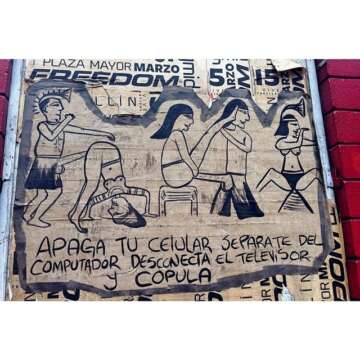 PLAZA MAYOR
MARZO
FREEDOM
5
MARZO
15
APAGA TU CELULAR SEPARATE DEL
COMPUTADOR DESCONECTA EL TELEVISOR
Y COPULA